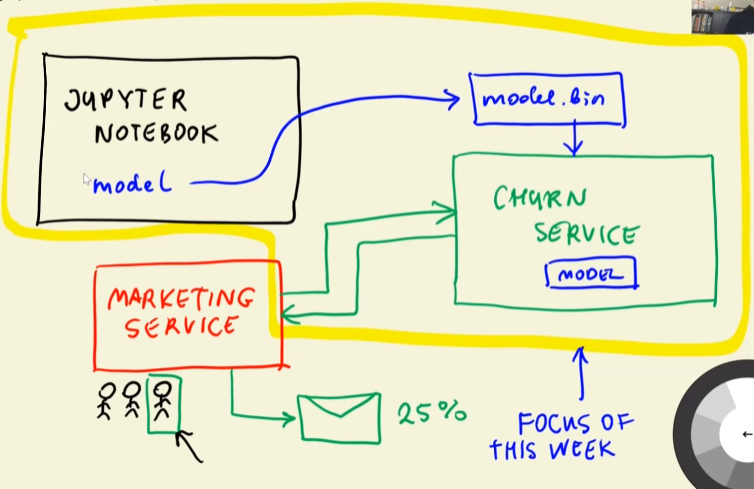 JUPYTER
NOTEBOOK
model
model.bin
CHURN
SERVICE
MODEL
MARKETING
SERVICE
25%
FOCUS OF
THIS WEEK